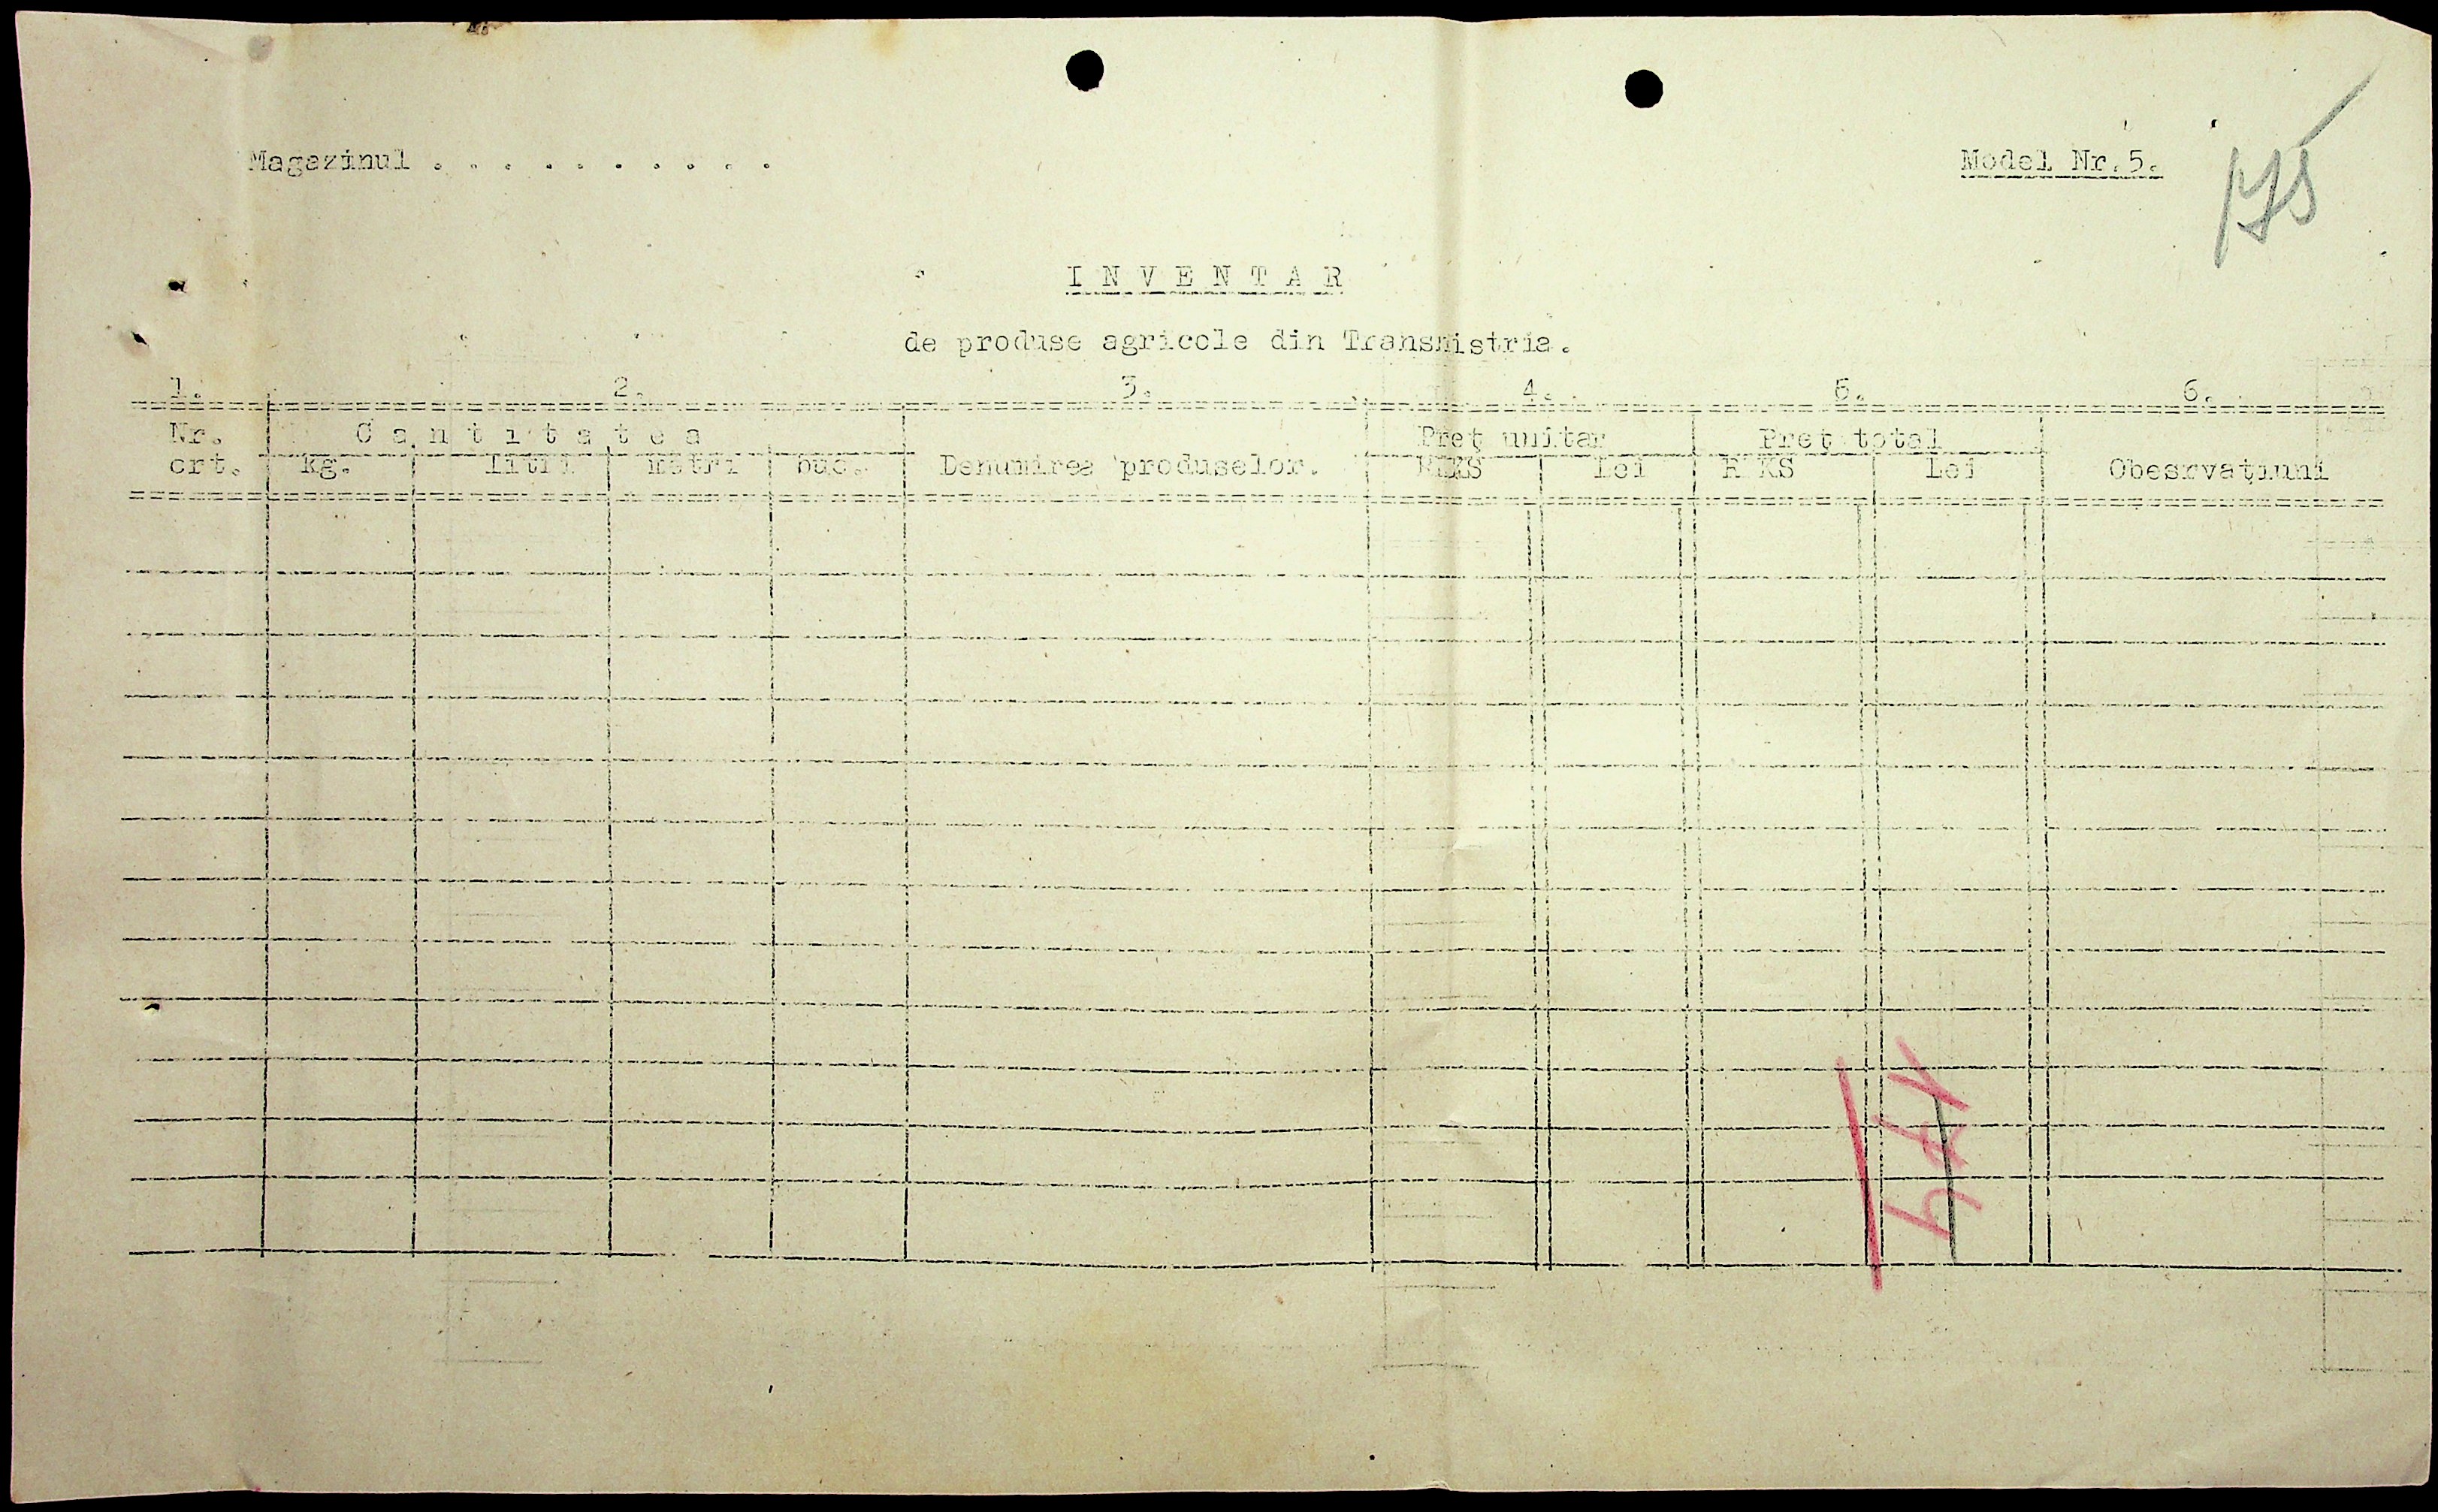 Magazinul . . . . . . . . . .
Model Nr.5.
175
I N V E N T A R
de produse agricole din Transnistria.
1. 2. 3. 4. 5. 6.
Nr. C a n t i t a t e a Preţ unitar Preţ total
crt. kg. litri metri buc. Denumirea produselor. RKKS Lei R KS Lei Obesrvaţiuni